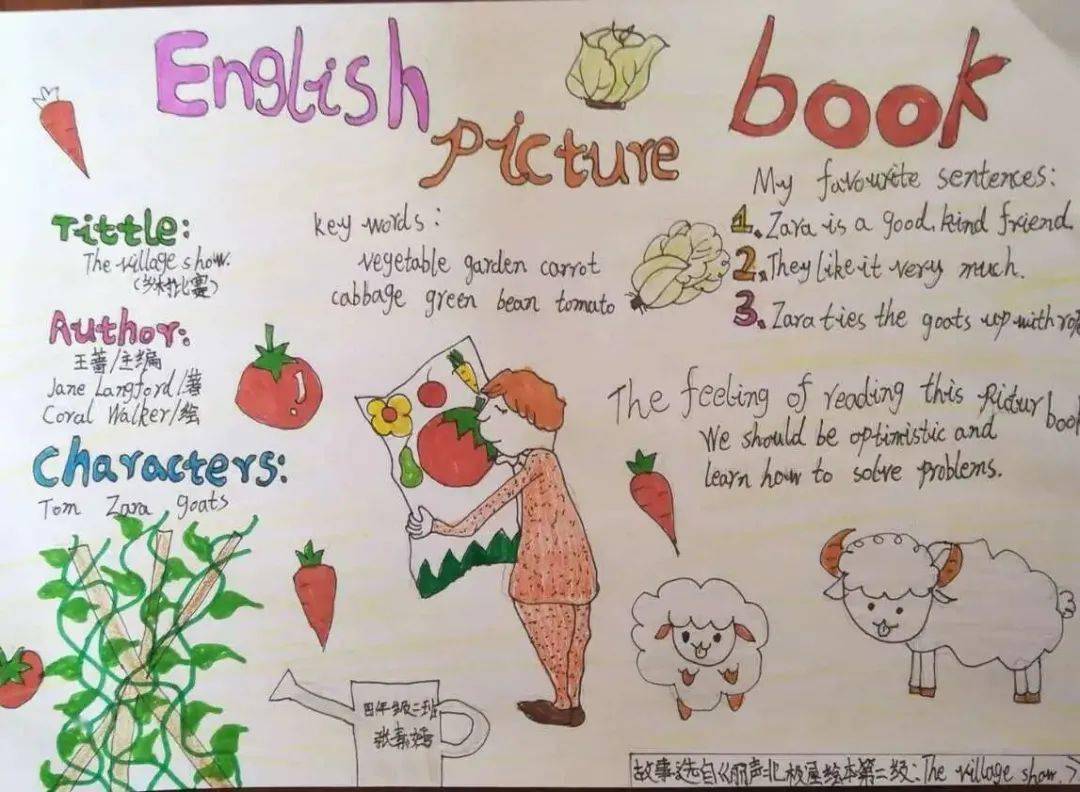 English
Picture
book
Tittle:
The village show.
(乡村比赛)
Author:
王蔷/主编
Jane Langford/著
Coral Walker/绘
Characters:
Tom Zara goats
key words:
vegetable garden carrot
cabbage green bean tomato
My favourite sentences:
1. Zara is a good, kind friend.
2. They like it very much.
3. Zara ties the goats up with
The feeling of reading this Pictur book
We should be optimistic and
learn how to solve problems.
四年级二班
张
故事选自《丽声北极星绘本第二级:The village show.》